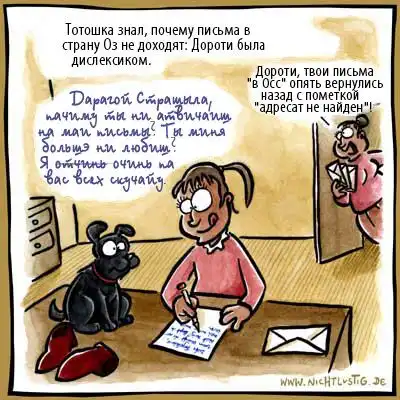 Тотошка знал, почему письма в
страну Оз не доходят: Дороти была
дислексиком.
Дороти, твои письма
"в Осс" опять вернулись
назад с пометкой
"адресат не найден"!
Дарагой Страшыла,
пачиму ты ни атвичаиш
на маи письмы? Ты миня
большэ ни любиш?
Я отчинь очинь па
вас всех скучайу.
WWW.NICHTLUSTIG.DE